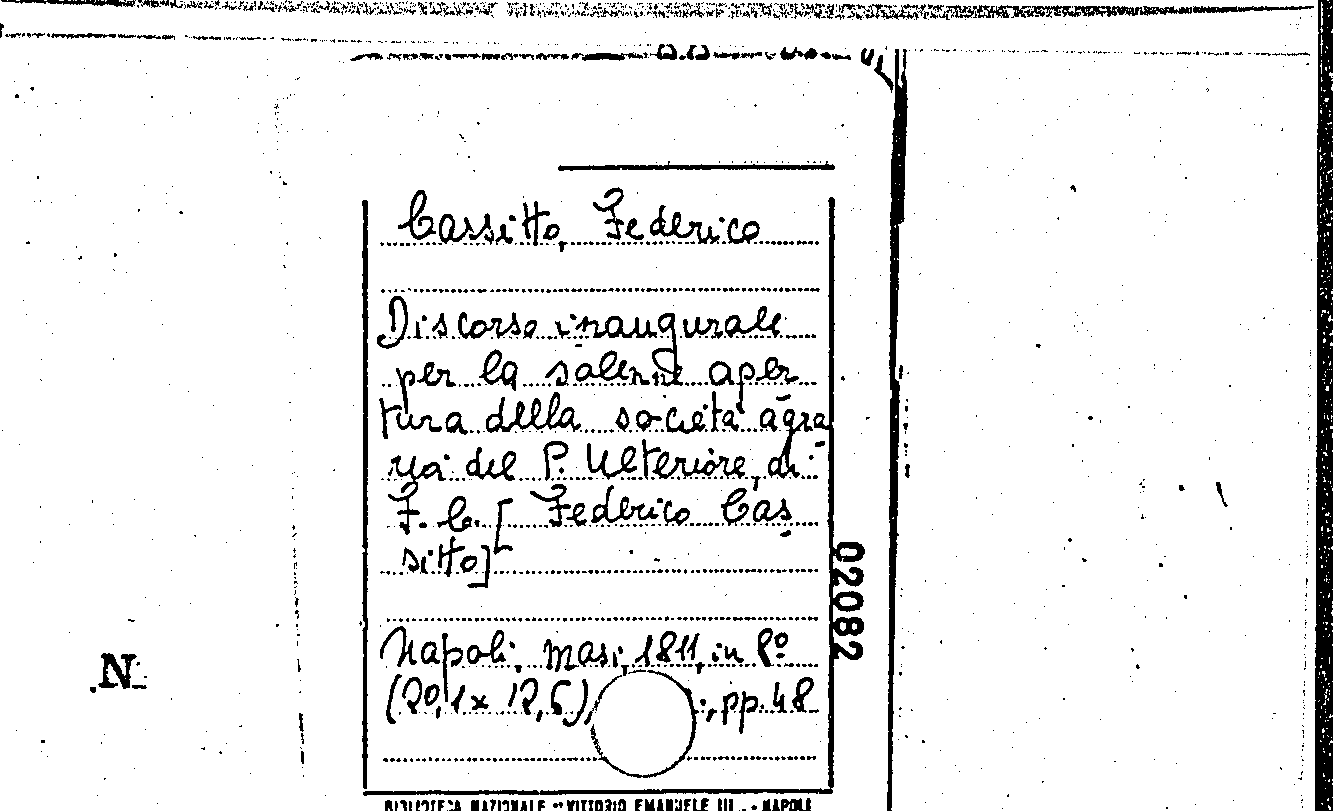 Cassitto, Federico
Discorso inaugurale
per la solenne aper
tura della società agra
ria del P. Ulteriore, di
F. C. [Federico Cas
sitto]
Napoli, Masi, 1811, in 8º
(20,1 x 12,6), pp. 48
02082
N
BIBLIOTECA NAZIONALE "VITTORIO EMANUELE III" - NAPOLI